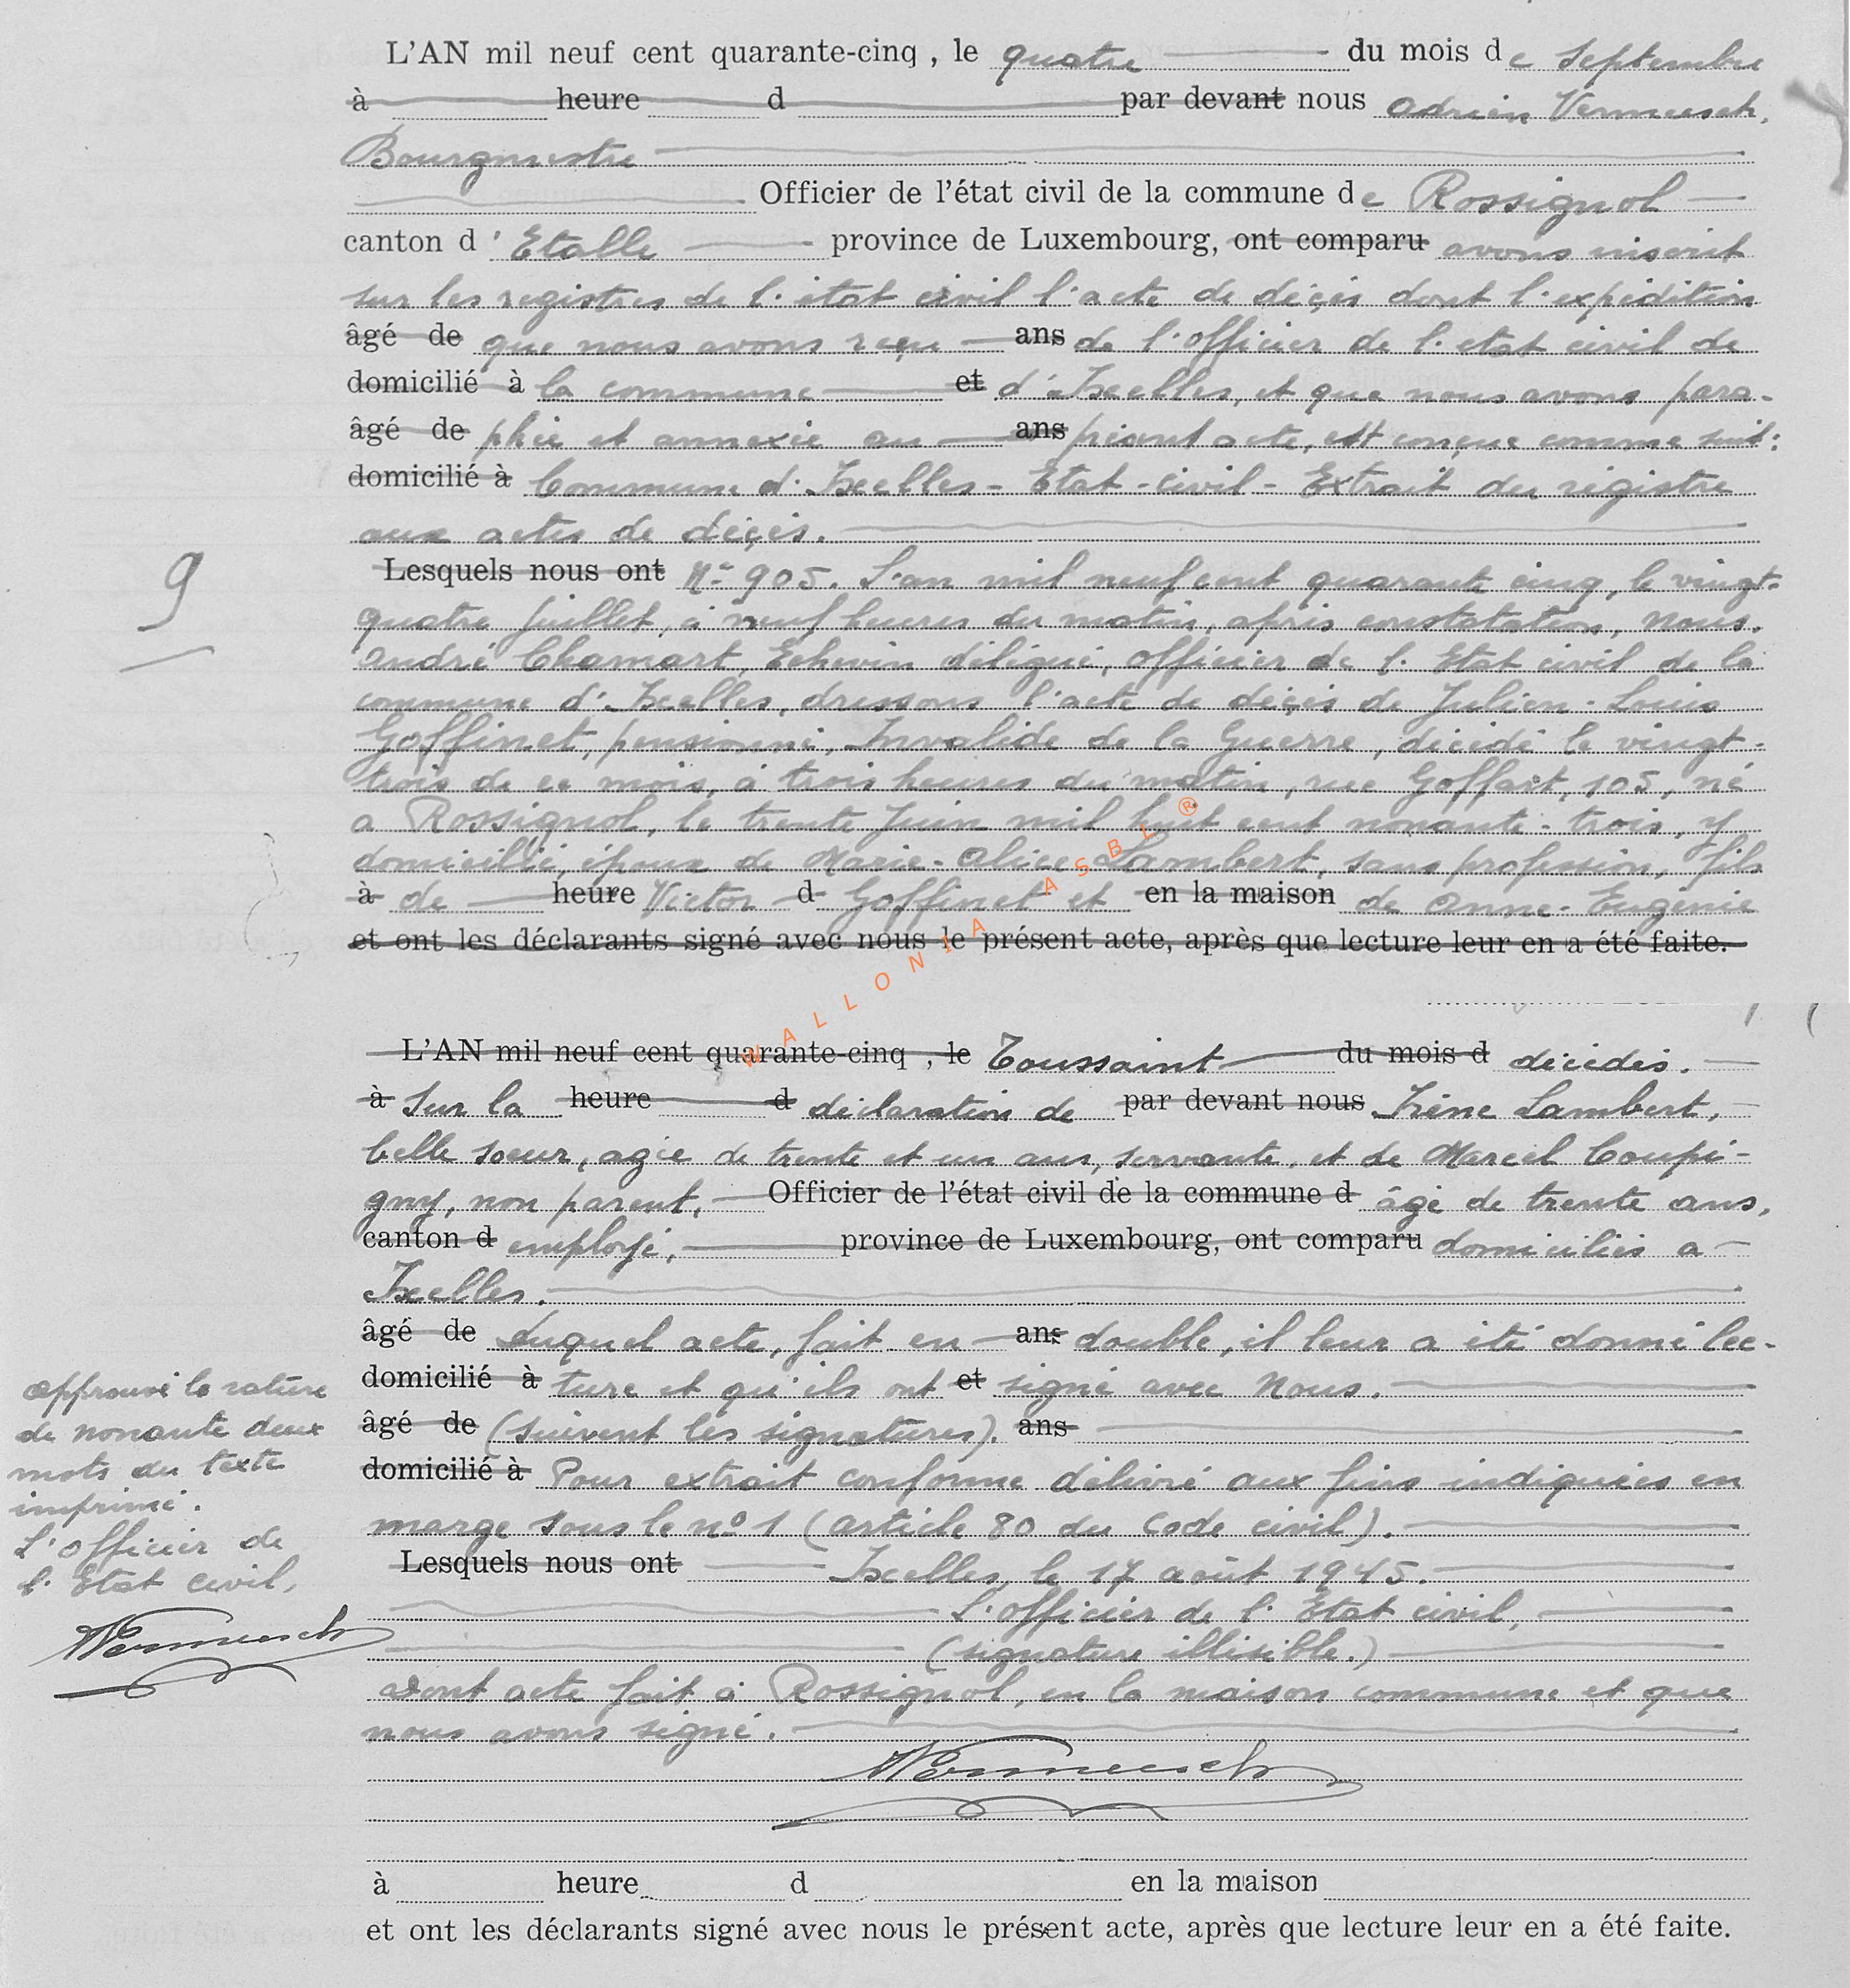 L'AN mil neuf cent quarante-cinq, le quatre du mois de Septembre
à heure d par devant nous Adrien Vermeesch,
Bourgmestre
Officier de l'état civil de la commune de Rossignol
canton d'Etalle province de Luxembourg, ont comparu avons inscrit
sur les registres de l'état civil l'acte de décès dont l'expédition
âgé de que nous avons reçu ans de l'officier de l'état civil de
domicilié à la commune et d'Ixelles, et que nous avons para-
âgé de phée et annexée au ans présent acte, est conçue comme suit:
domicilié à Commune d'Ixelles - Etat-civil - Extrait du régistre
aux actes de décès.
9
Lesquels nous ont N° 905. L'an mil neuf cent quarante cinq, le vingt-
quatre Juillet, à neuf heures du matin, après constatation, Nous,
André Chamart, Echevin délégué, officier de l'Etat civil de la
commune d'Ixelles, dressons l'acte de décès de Julien-Louis
Goffinet, pensionné, Invalide de la Guerre, décédé le vingt-
trois de ce mois, à trois heures du matin, rue Goffart, 105, né
à Rossignol, le trente Juin mil huit cent nonante-trois, y
domicilié, époux de Marie-Alice Lambert, sans profession, fils
à de heure Victor d Goffinet et en la maison de Anne-Eugénie
et ont les déclarants signé avec nous le présent acte, après que lecture leur en a été faite.
WALLONIA ASBL ®
L'AN mil neuf cent quarante-cinq, le Toussaint du mois d décédés.
à Sur la heure d déclaration de par devant nous Irène Lambert,
belle soeur, agée de trente et un ans, servante, et de Marcel Coupi-
gny, non parent, Officier de l'état civil de la commune d âgé de trente ans,
canton d employé, province de Luxembourg, ont comparu domiciliés à
Ixelles.
âgé de Duquel acte, fait en ans double, il leur a été donné lec-
domicilié à ture et qu'ils ont et signé avec Nous.
âgé de (suivent les signatures). ans
domicilié à Pour extrait conforme délivré aux fins indiquées en
marge sous le n° 1 (article 80 du Code civil).
Lesquels nous ont Ixelles, le 17 août 1945.
L'officier de l'Etat civil,
(signature illisible.)
Dont acte fait à Rossignol, en la maison commune et que
nous avons signé.
Vermeesch
approuvé la rature
de nonante deux
mots du texte
imprimé.
L'officier de
l'Etat civil,
Vermeesch
à heure d en la maison
et ont les déclarants signé avec nous le présent acte, après que lecture leur en a été faite.